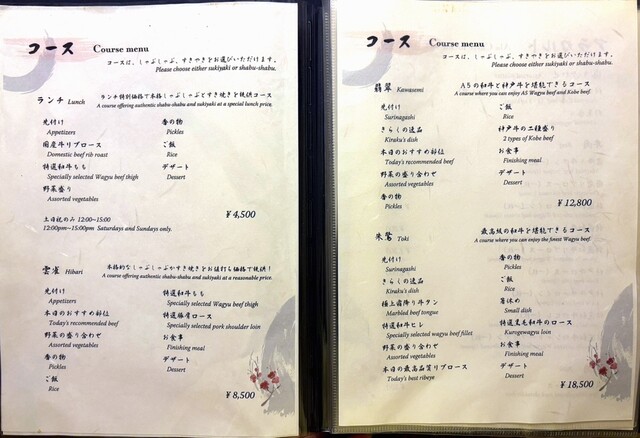 コース Course menu
コースは、しゃぶしゃぶ、すきやきをお選びいただけます。
Please choose either sukiyaki or shabu-shabu.
ランチ Lunch
ランチ特別価格で本格しゃぶしゃぶとすき焼を提供コース
A course offering authentic shabu-shabu and sukiyaki at a special lunch price.
先付け
Appetizers
国産牛リブロース
Domestic beef rib roast
特選和牛もも
Specially selected Wagyu beef thigh
野菜盛り
Assorted vegetables
香の物
Pickles
ご飯
Rice
デザート
Dessert
土日祝のみ 12:00~15:00
12:00pm~15:00pm Saturdays and Sundays only.
¥4,500
雲雀 Hibari
本格的なしゃぶしゃぶかすき焼きをお値打ち価格で提供！
A course offering authentic shabu-shabu and sukiyaki at a reasonable price.
先付け
Appetizers
本日のおすすめ部位
Today's recommended beef
野菜の盛り合わせ
Assorted vegetables
香の物
Pickles
ご飯
Rice
特選和牛もも
Specially selected Wagyu beef thigh
特選豚肩ロース
Specially selected pork shoulder loin
お食事
Finishing meal
デザート
Dessert
¥8,500
コース Course menu
コースは、しゃぶしゃぶ、すきやきをお選びいただけます。
Please choose either sukiyaki or shabu-shabu.
翡翠 Kawasemi
A5の和牛と神戸牛を堪能できるコース
A course where you can enjoy A5 Wagyu beef and Kobe beef.
先付け
Surinagashi
きらくの逸品
Kiraku's dish
本日のおすすめ部位
Today's recommended beef
野菜の盛り合わせ
Assorted vegetables
香の物
Pickles
ご飯
Rice
神戸牛の二種盛り
2 types of Kobe beef
お食事
Finishing meal
デザート
Dessert
¥12,800
朱鷺 Toki
最高級の和牛を堪能できるコース
A course where you can enjoy the finest Wagyu beef.
先付け
Surinagashi
きらくの逸品
Kiraku's dish
極上霜降り牛タン
Marbled beef tongue
特選和牛ヒレ
Specially selected wagyu beef fillet
野菜の盛り合わせ
Assorted vegetables
本日の最高品質リブロース
Today's best ribeye
香の物
Pickles
ご飯
Rice
箸休め
Small dish
特選黒毛和牛のロース
Kurogewagyu loin
お食事
Finishing meal
デザート
Dessert
¥18,500